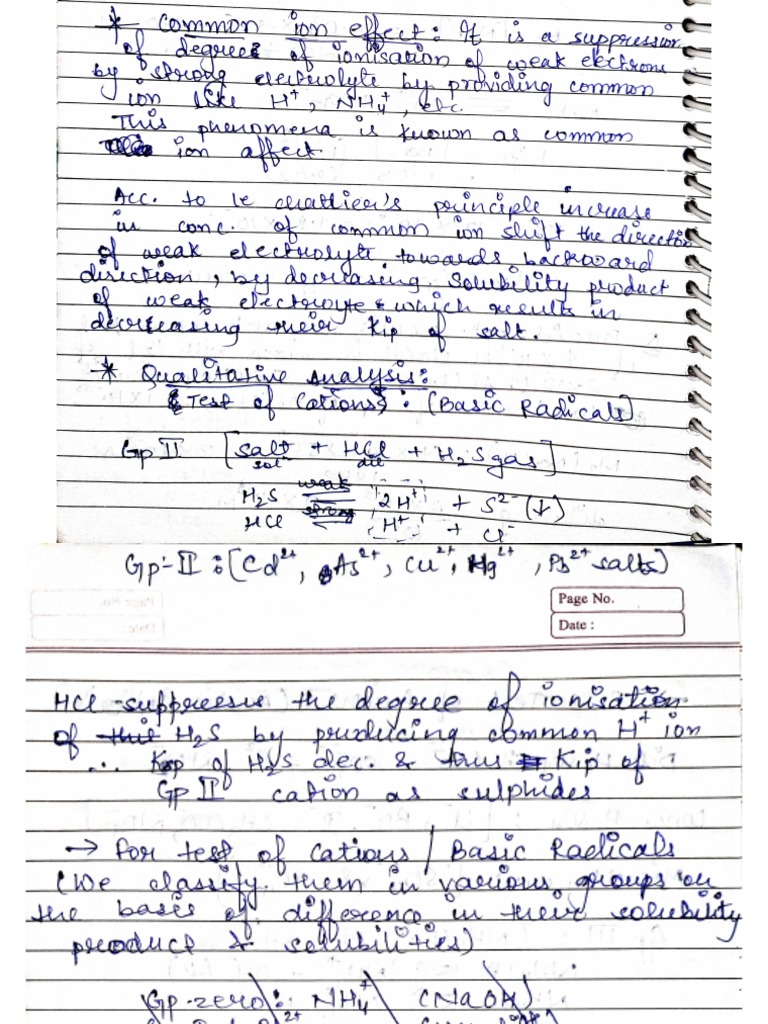 * Common ion effect: It is a suppression
of degree of ionisation of weak electrons
by strong electrolyte by providing common
ion like H⁺, NH₄⁺, etc.
This phenomena is known as common
ion affect.
Acc. to le chatlier's principle increase
in conc. of common ion shift the direction
of weak electrolyte towards backward
direction, by decreasing solubility product
of weak electrolyte & which results in
decreasing their Kip of salt.
* Qualitative Analysis:
{Test of Cations}: (Basic Radicals)
Gp II [salt + HCl + H₂S gas]
solⁿ dil
H₂S ⇌ weak 2H⁺ + S²⁻ (↓)
HCl ⇌ strong H⁺ + Cl⁻
Gp-II: [Cd²⁺, As²⁺, Cu²⁺, Hg²⁺, Pb²⁺ salts)
Page No.
Date :
HCl suppresses the degree of ionisation
of this H₂S by producing common H⁺ ion
∴ Ksp of H₂S dec. & thus Kip of
Gp II cation as sulphides
→ For test of Cations / Basic Radicals
(We classify them in various groups on
the basis of difference in their solubility
product & solubilities)
Gp-zero: NH₄⁺ (NaOH)